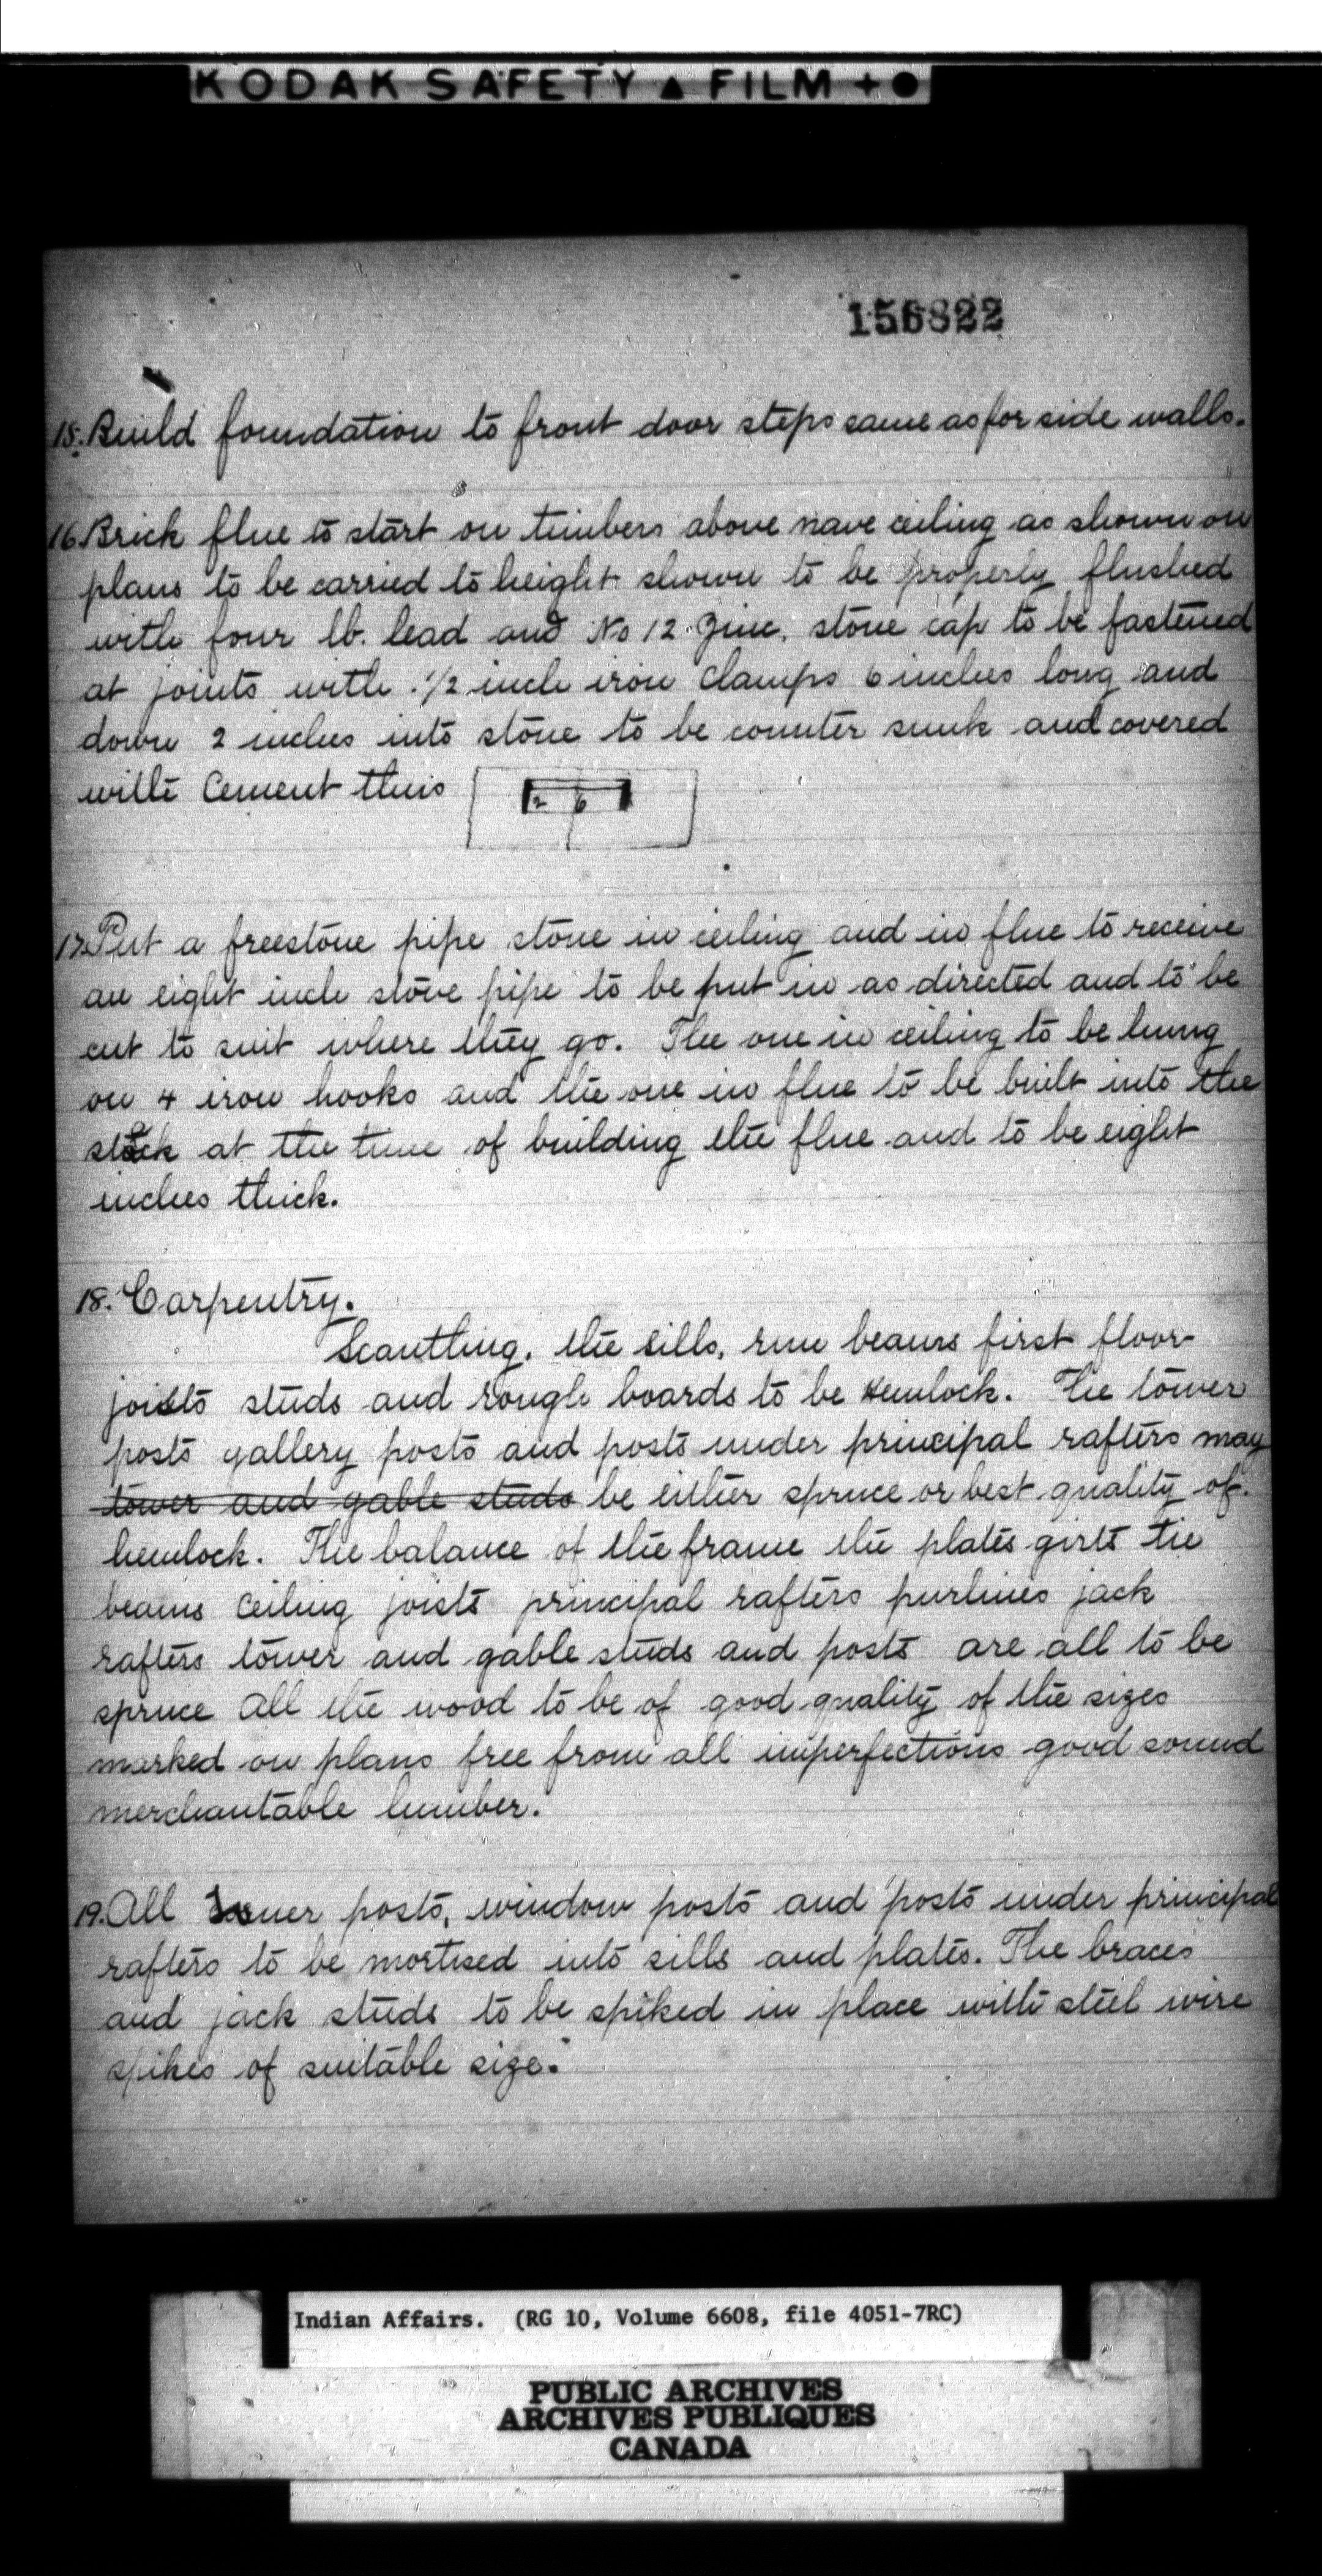 KODAK SAFETY ▲ FILM + ●
156822
15. Build foundation to front door steps same as for side walls.
16. Brick flue to start on timbers above nave ceiling as shown on
plans to be carried to height shown to be properly flushed
with four lb. lead and No 12 Zinc. stone cap to be fastened
at joints with 1/2 inch iron Clamps 6 inches long and
down 2 inches into stone to be counter sunk and covered
with Cement thus
2 6
17. Put a freestone pipe stone in ceiling and in flue to receive
an eight inch stove pipe to be put in as directed and to be
cut to suit where they go. The one in ceiling to be hung
on 4 iron hooks and the one in flue to be built into the
stack at the time of building the flue and to be eight
inches thick.
18. Carpentry.
Scantling. the sills, run beams first floor
joists studs and rough boards to be Hemlock. The tower
posts gallery posts and posts under principal rafters may
tower and gable studs be either spruce or best quality of
hemlock. The balance of the frame the plates girts tie
beams Ceiling joists principal rafters purlines jack
rafters tower and gable studs and posts are all to be
spruce All the wood to be of good quality of the sizes
marked on plans free from all imperfections good sound
merchantable lumber.
19. All posts, window posts and posts under principal
rafters to be mortised into sills and plates. The braces
and jack studs to be spiked in place with steel wire
spikes of suitable size.
Indian Affairs. (RG 10, Volume 6608, file 4051-7RC)
PUBLIC ARCHIVES
ARCHIVES PUBLIQUES
CANADA